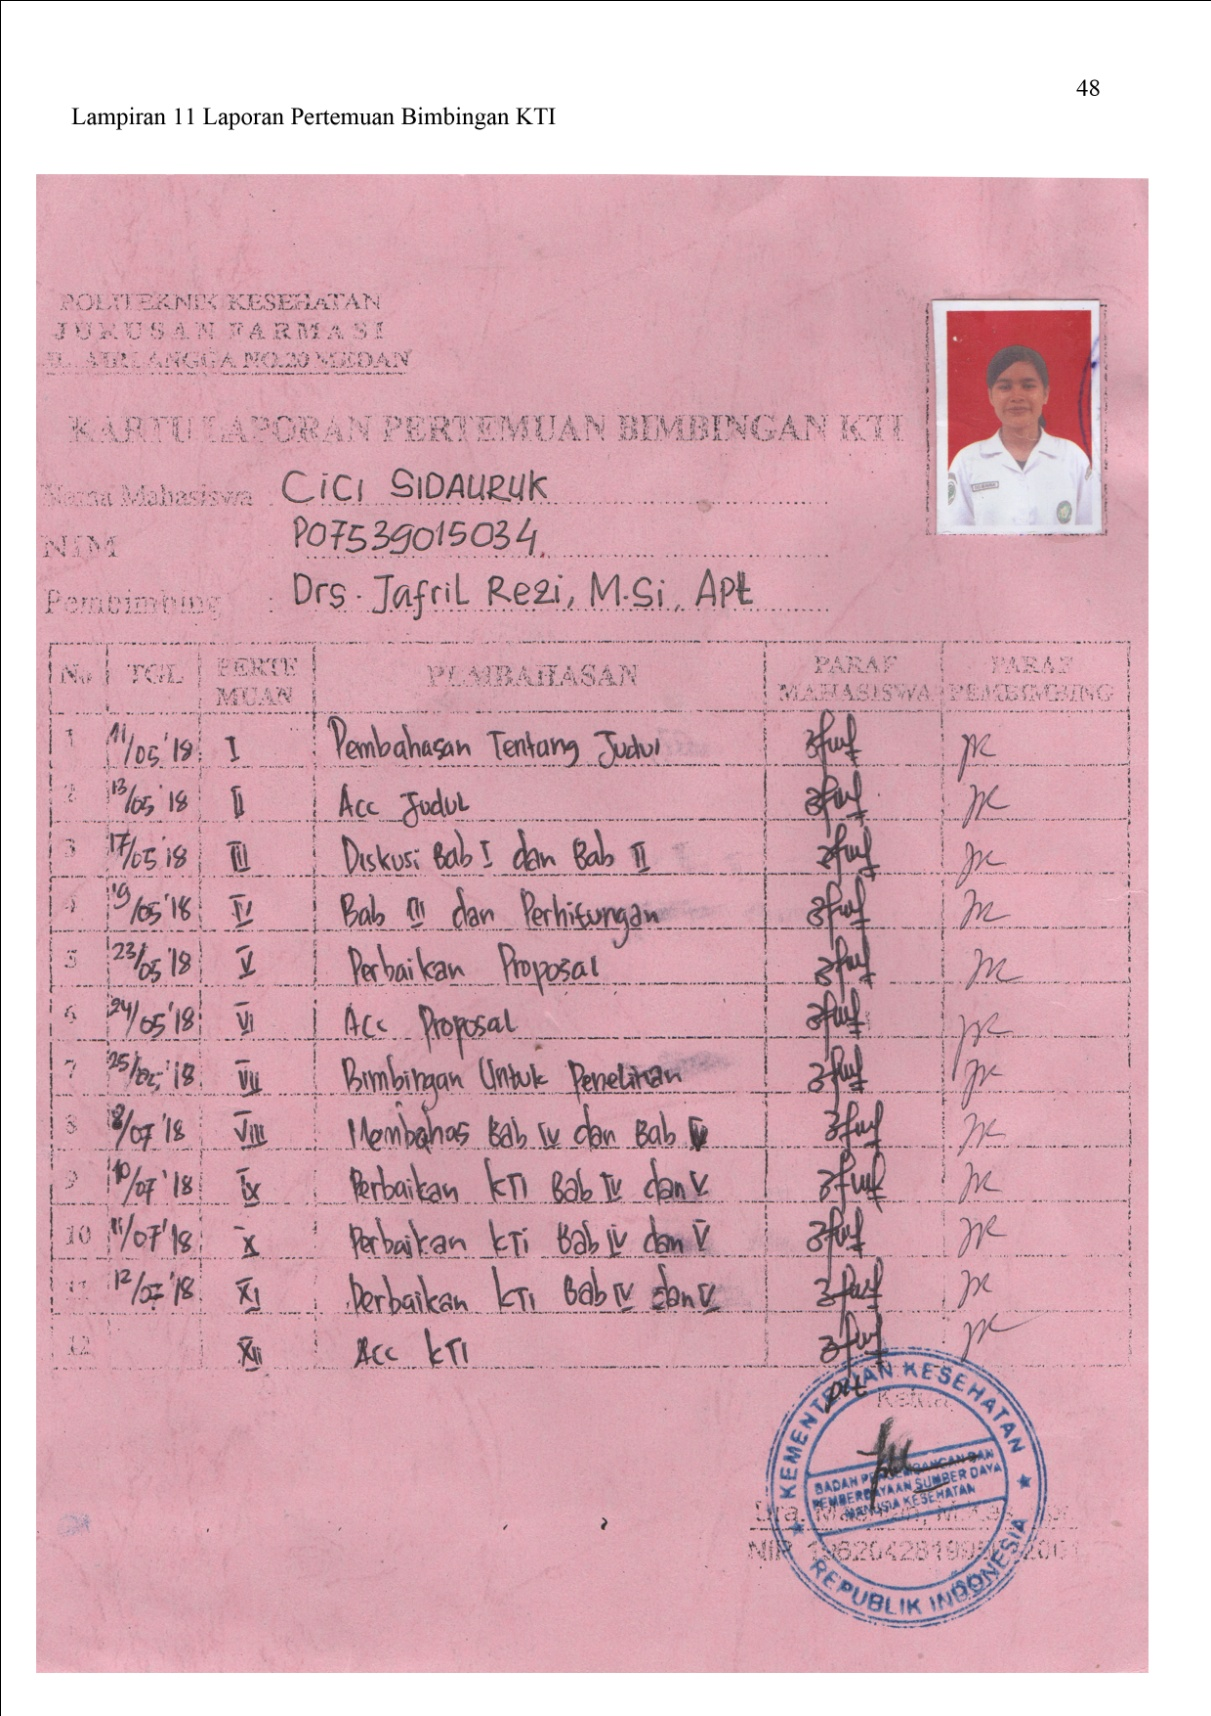 48
Lampiran 11 Laporan Pertemuan Bimbingan KTI
POLITEKNIK KESEHATAN
JURUSAN FARMASI
JL. AIRLANGGA NO.20 MEDAN
KARTU LAPORAN PERTEMUAN BIMBINGAN KTI
Nama Mahasiswa : CiCi SIDAURUK
NIM : P07539015034
Pembimbing : Drs. Jafril Rezi, M.Si, Apt
No TGL PERTEMUAN PEMBAHASAN PARAF MAHASISWA PARAF PEMBIMBING
1 11/05'18 I Pembahasan Tentang Judul
2 13/05'18 II Acc Judul
3 17/05'18 III Diskusi Bab I dan Bab II
4 19/05'18 IV Bab III dan Perhitungan
5 23/05'18 V Perbaikan Proposal
6 24/05'18 VI Acc Proposal
7 25/05'18 VII Bimbingan Untuk Penelitian
8 8/07'18 VIII Membahas Bab IV dan Bab V
9 10/07'18 IX Perbaikan KTI Bab IV dan V
10 11/07'18 X Perbaikan KTi Bab IV dan V
11 12/07'18 XI Perbaikan KTI Bab IV dan V
12 XII Acc KTI
Ketua
KEMENTERIAN KESEHATAN
BADAN PENGEMBANGAN DAN
PEMBERDAYAAN SUMBER DAYA
MANUSIA KESEHATAN
REPUBLIK INDONESIA
Dra.
NIP.